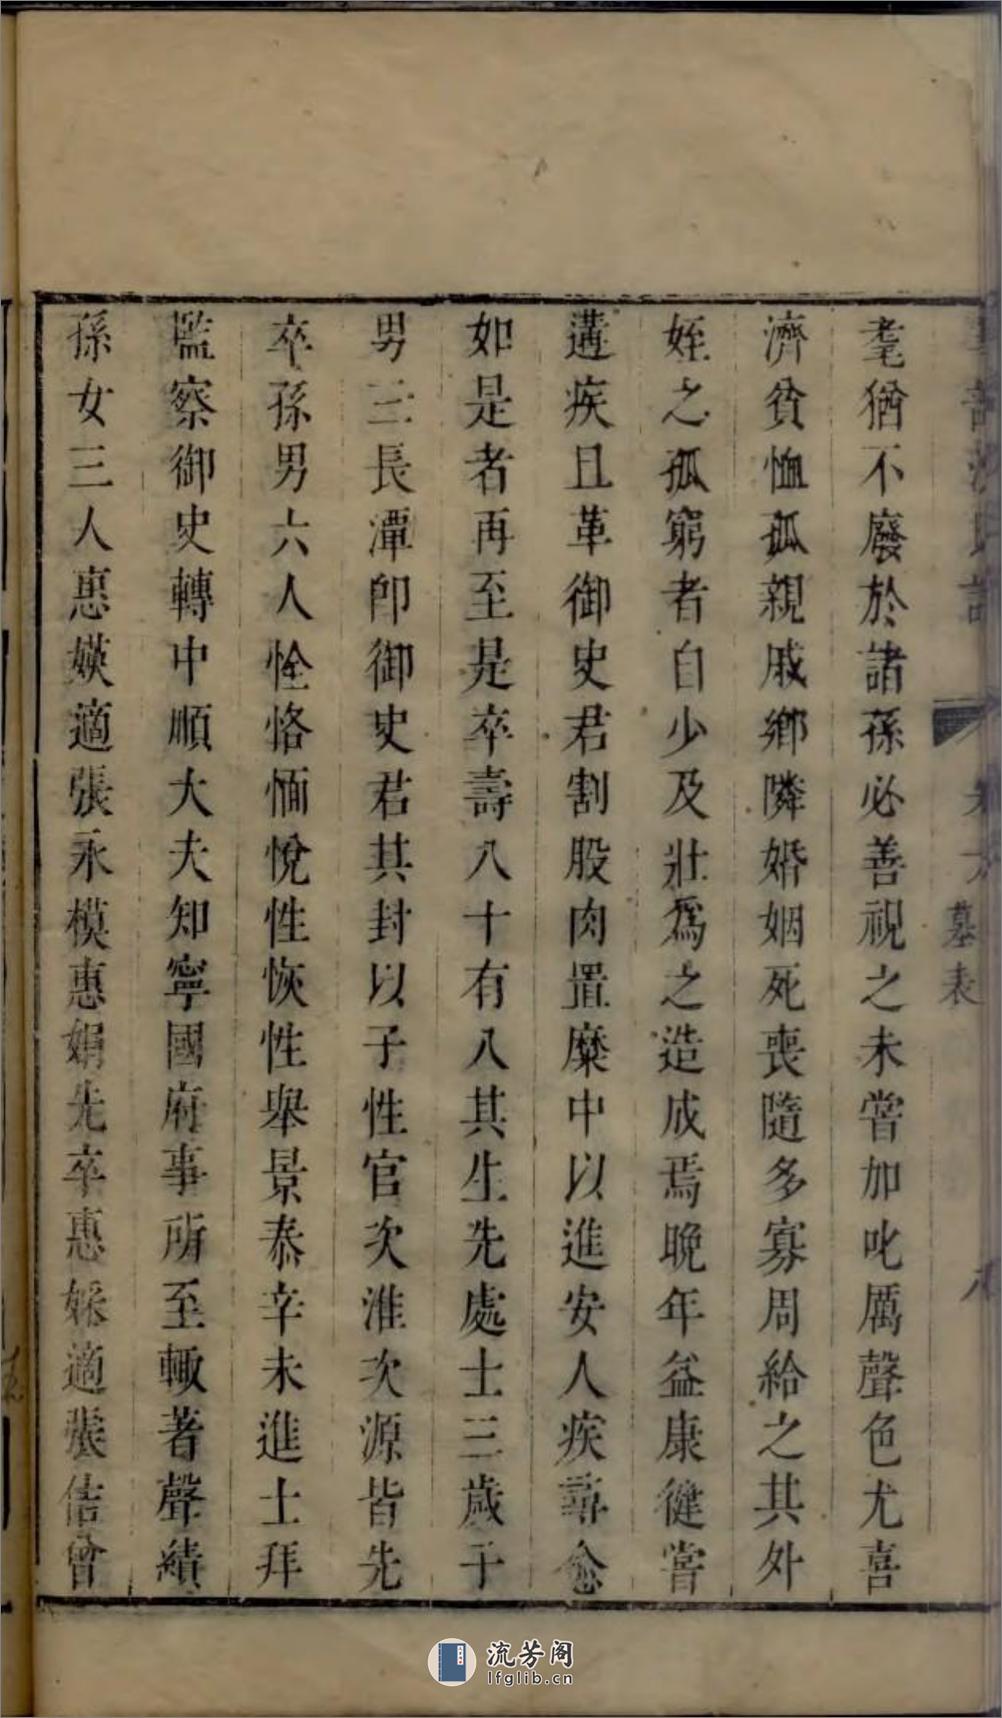 耄猶不廢於諸孫必善視之未嘗加叱厲聲色尤喜
濟貧恤孤親戚鄉隣婚姻死喪隨多寡周給之其外
姪之孤窮者自少及壯爲之造成焉晚年益康健嘗
遘疾且革御史君割股肉置糜中以進安人疾尋愈
如是者再至是卒壽八十有八其生先處士三歲子
男三長潭卽御史君其封以子性官次淮次源皆先
卒孫男六人恮恪愐悅性恢性舉景泰辛未進士拜
監察御史轉中順大夫知寧國府事所至輙著聲績
孫女三人惠媖適張永模惠娟先卒惠婇適張佶曾
墓表
流芳阁
lfglib.cn